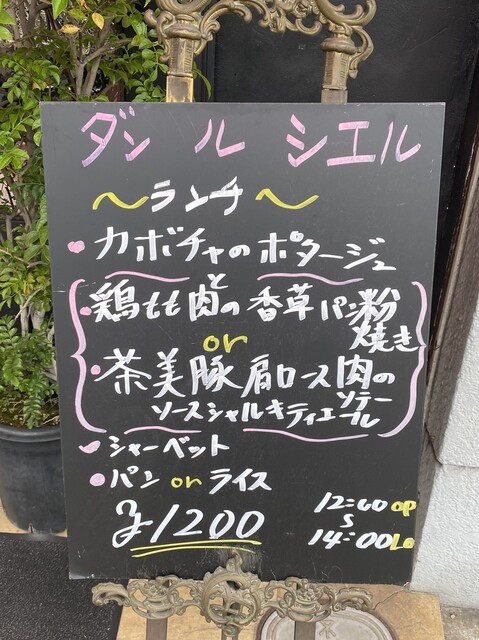 ダン ル シエル
～ランチ～
・カボチャのポタージュ
と
・鶏もも肉の香草パン粉
焼き
or
・茶美豚肩ロース肉の
ソテー
ソースシャルキティエール
・シャーベット
・パン or ライス
¥1200
12:00 op
S
14:00 Lo